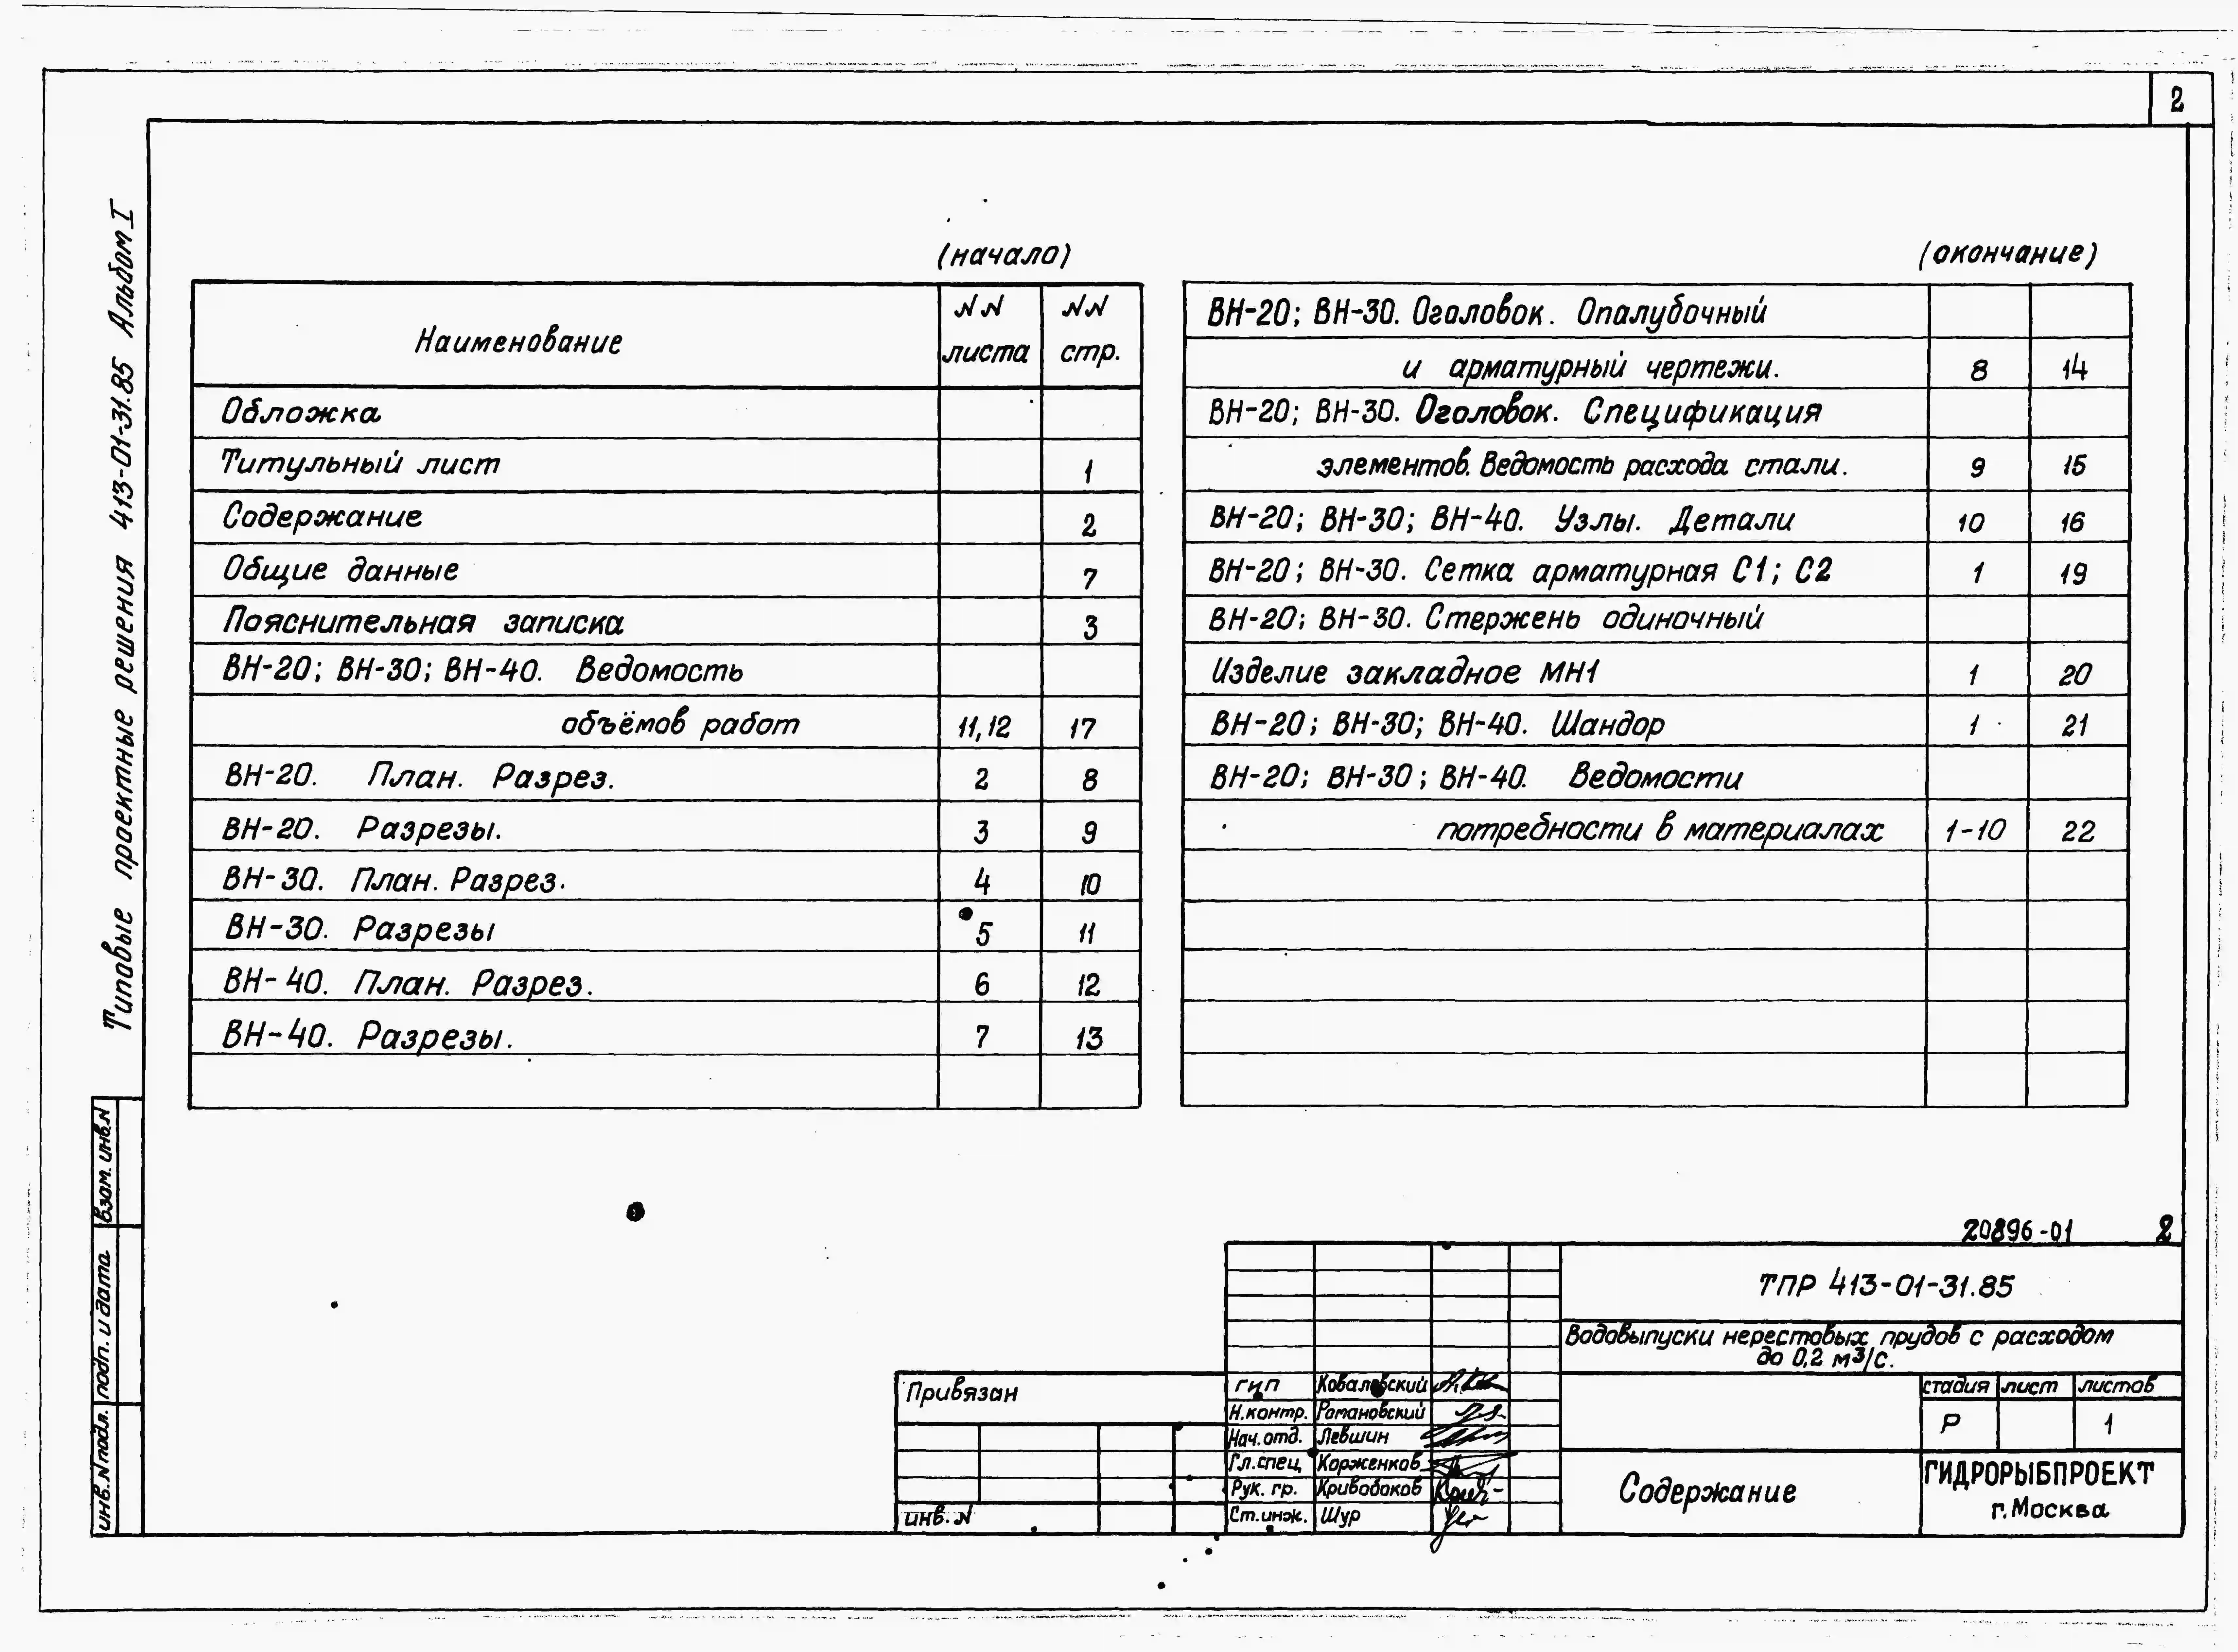 2
Типовые проектные решения 413-01-31.85 Альбом I
(начало)
Наименование
№№ листа
№№ стр.
Обложка
Титульный лист 1
Содержание 2
Общие данные 7
Пояснительная записка 3
ВН-20; ВН-30; ВН-40. Ведомость
объёмов работ 11,12 17
ВН-20. План. Разрез. 2 8
ВН-20. Разрезы. 3 9
ВН-30. План. Разрез. 4 10
ВН-30. Разрезы 5 11
ВН-40. План. Разрез. 6 12
ВН-40. Разрезы. 7 13
(окончание)
ВН-20; ВН-30. Оголовок. Опалубочный
и арматурный чертежи. 8 14
ВН-20; ВН-30. Оголовок. Спецификация
элементов. Ведомость расхода стали. 9 15
ВН-20; ВН-30; ВН-40. Узлы. Детали 10 16
ВН-20; ВН-30. Сетка арматурная С1; С2 1 19
ВН-20; ВН-30. Стержень одиночный
Изделие закладное МН1 1 20
ВН-20; ВН-30; ВН-40. Шандор 1 21
ВН-20; ВН-30; ВН-40. Ведомости
потребности в материалах 1-10 22
взам. инв.№
подп. и дата
инв.№подл.
20896-01 2
ТПР 413-01-31.85
Водовыпуски нерестовых прудов с расходом
до 0,2 м3/с.
Привязан
инв.№
ГИП Ковалевский
Н.контр. Романовский
Нач.отд. Левшин
Гл.спец. Корженков
Рук. гр. Кривобоков
Ст.инж. Шур
стадия лист листов
Р 1
Содержание
ГИДРОРЫБПРОЕКТ
г.Москва